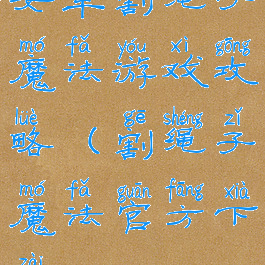 mó fǎ yóu xì gōng
魔法游戏攻
lüè gē shéng zǐ
略(割绳子
mó fǎ guān fāng xià
魔法官方下